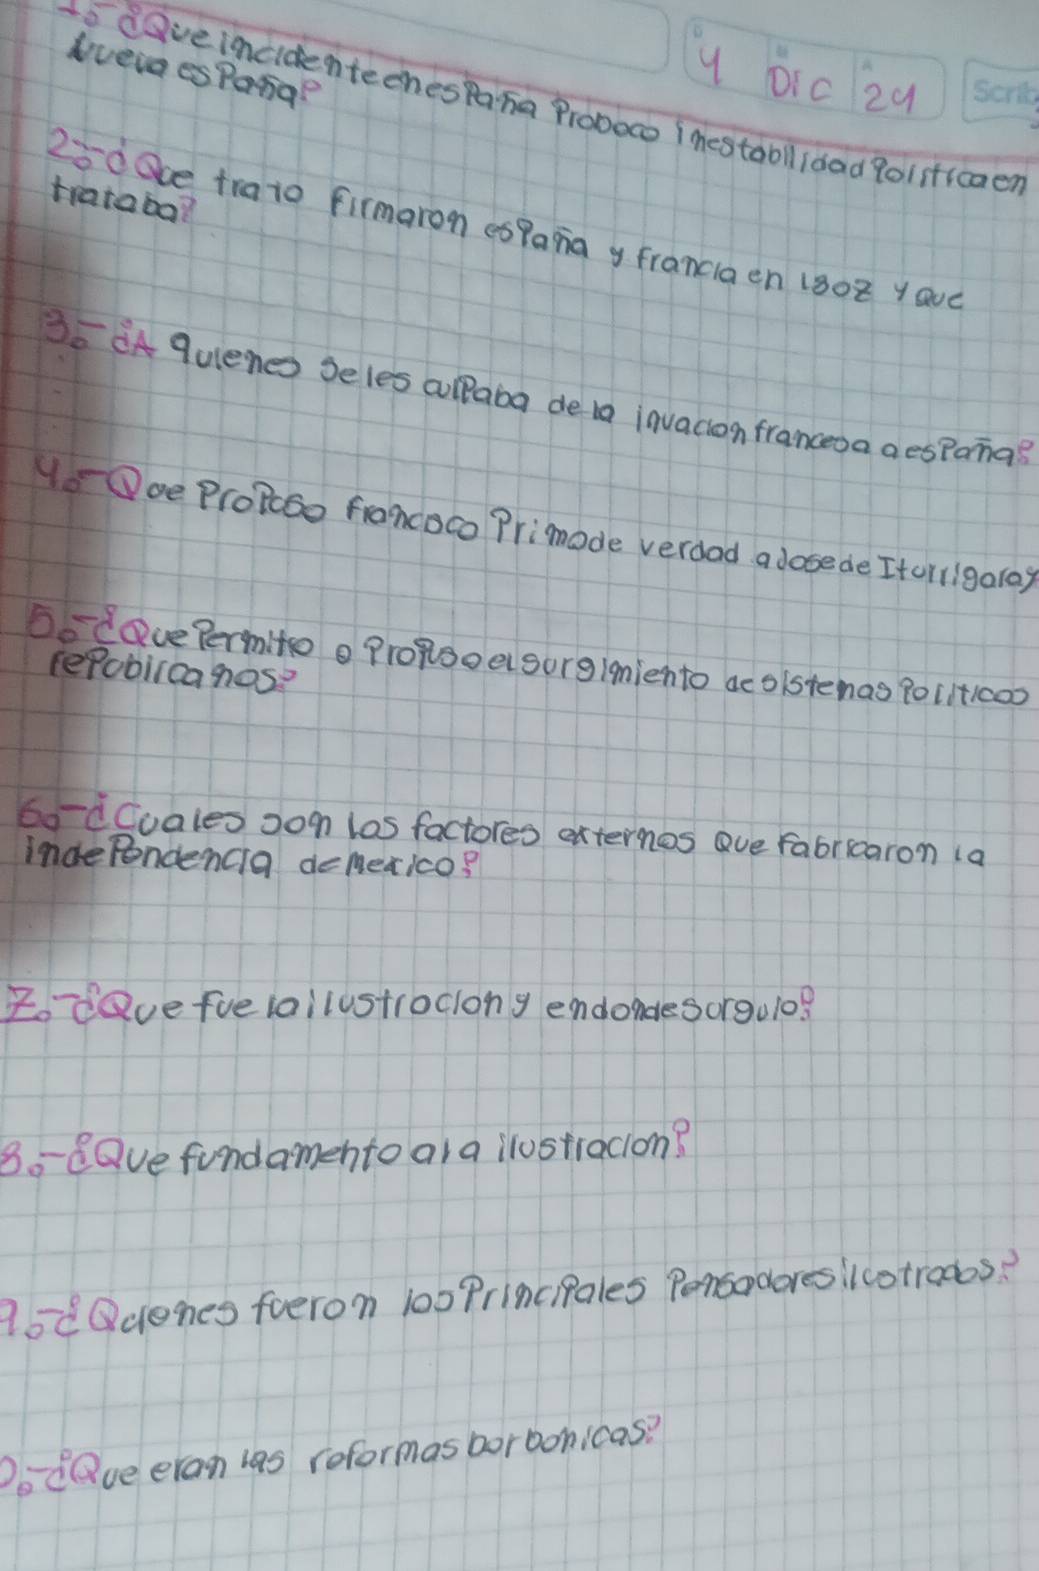 4 Dic 24
Scribe
1.-¿Que incidente en esPaña Proboco inestabilidad Polisticaen
Nueva esPaña?
2.-¿Que trato firmaron esPaña y francia en 1807 y Que
trataba?
3.-¿A quienes seles culPaba de la invacion francesa a esPaña?
4.-Que ProPuso francoco Primode verdad a Josede Iturrigaray
5.-¿Que Permitio o ProPuso el surgimiento de sistemas Politicos
rePublicanos?
6.-¿Cuales son los factores externos Que fabricaron la
indePendencia de Mexico?
7.-¿Que fue la ilustracion y endonde surguio?
8.-¿Que fundamento a la ilustracion?
9.-¿Quienes fueron los PrinciPales Pensadores ilustrados?
0.-¿Que eran las reformas borbonicas?